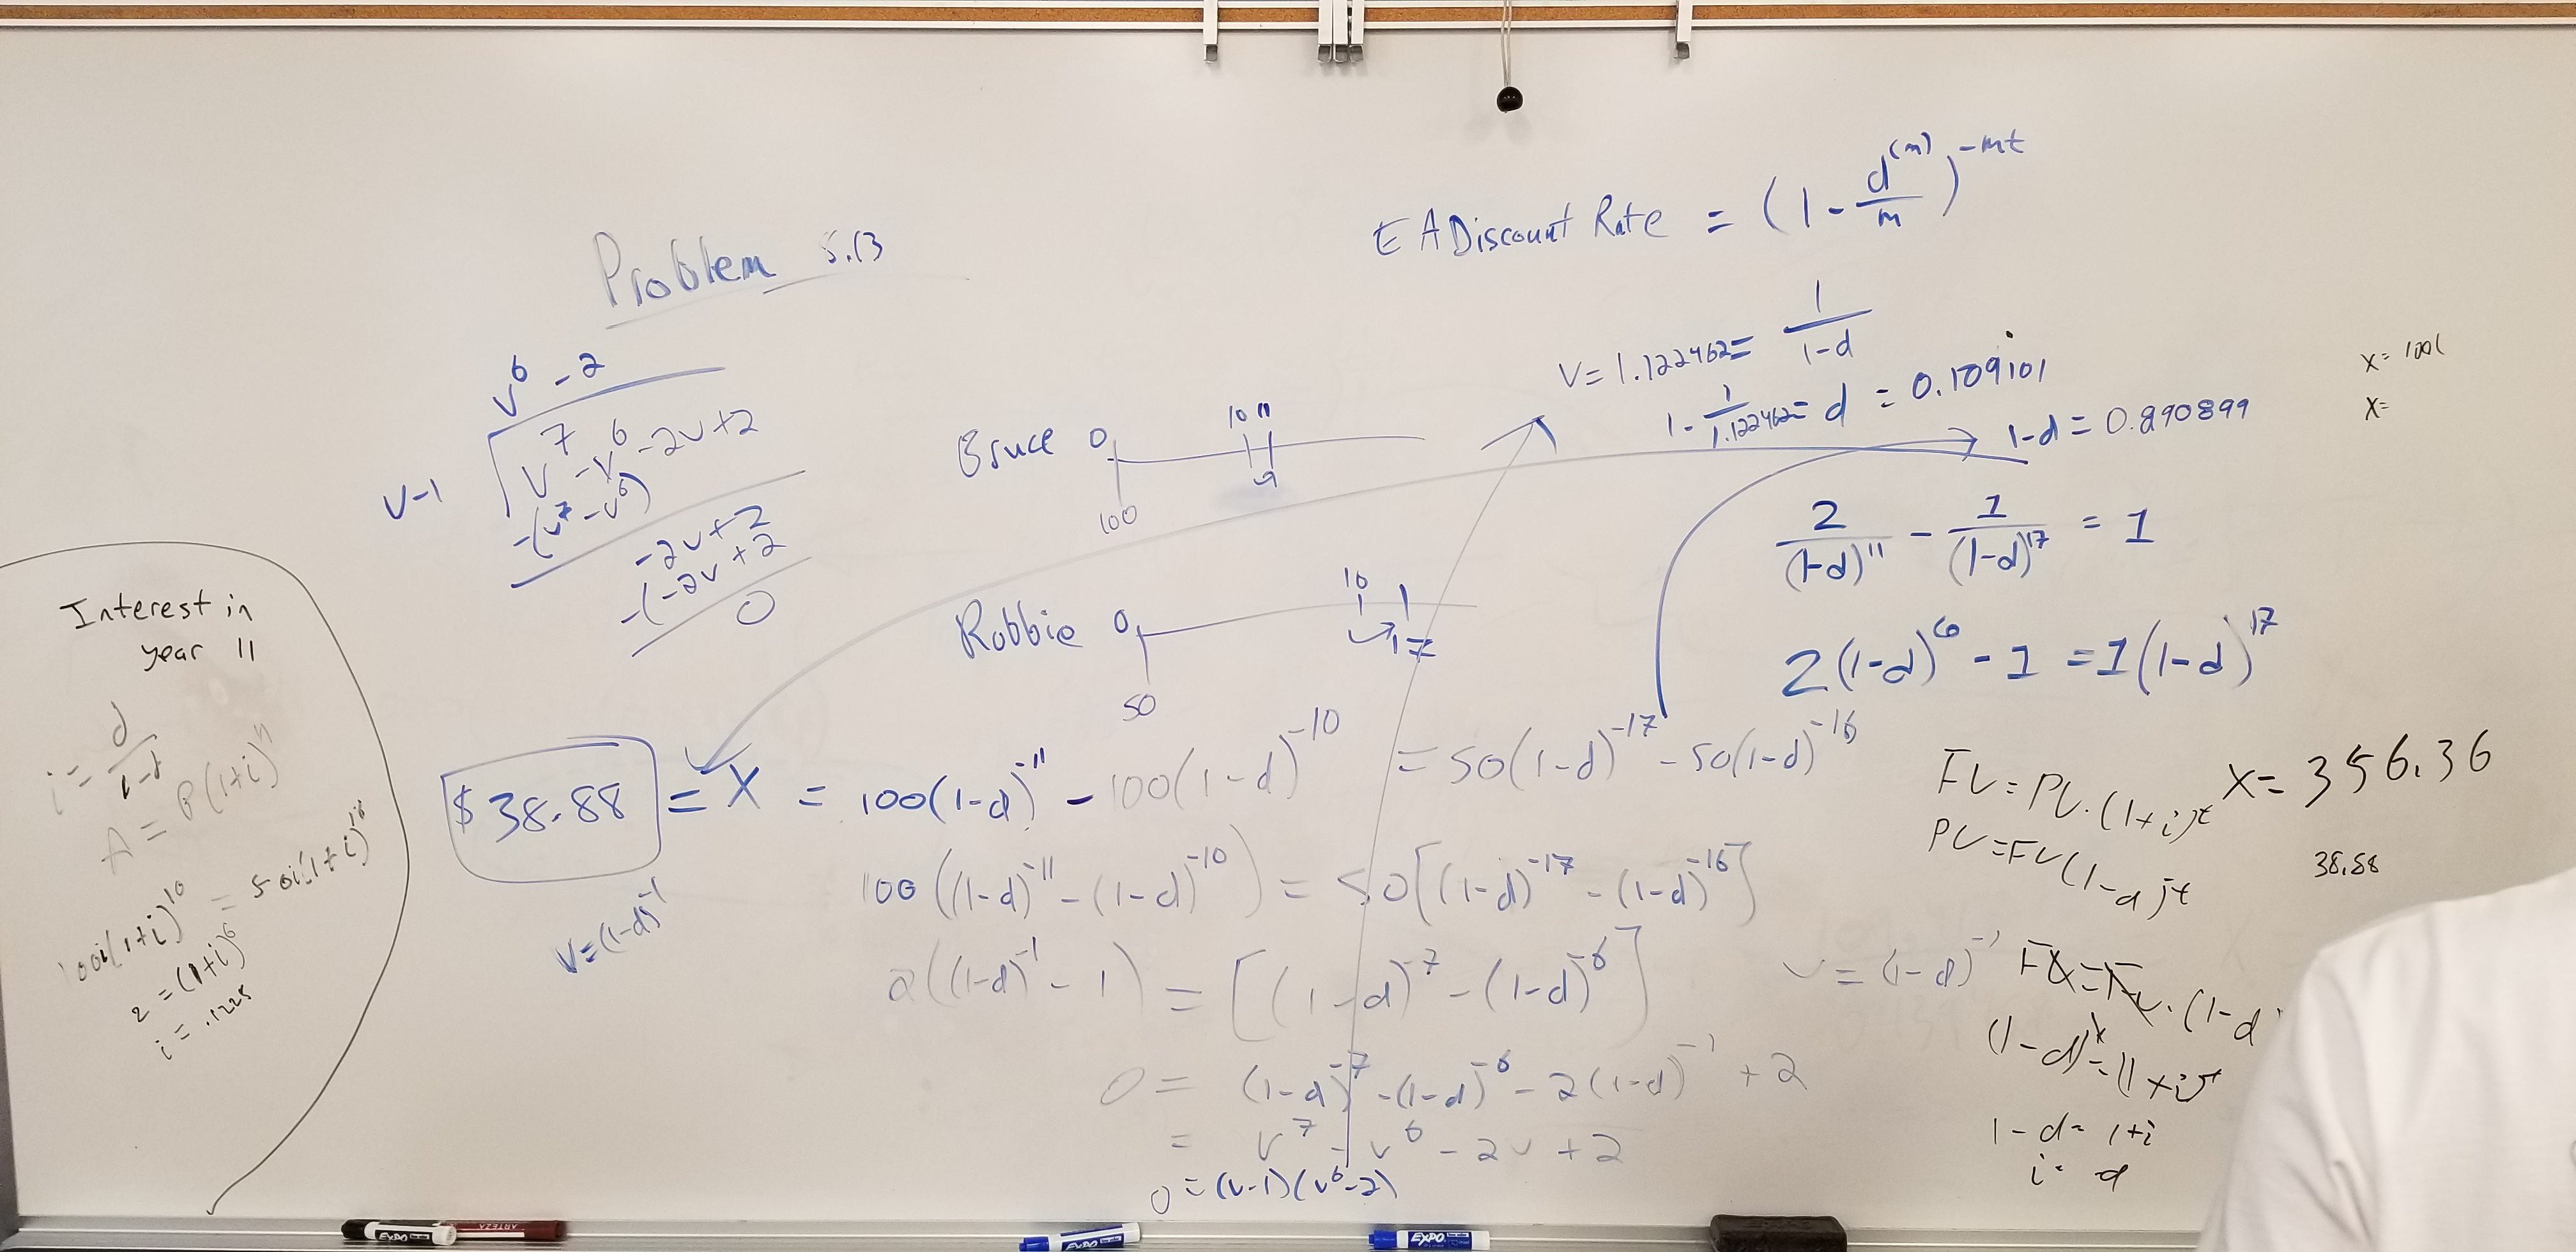 Problem 5.13
EA Discount Rate = (1 - d^(m)/m)^-mt
v^6 - 2
v-1 | v^7 - v^6 - 2v + 2
-(v^7 - v^6)
-2v + 2
-(-2v + 2)
0
Bruce 0 10 11
100
Robbie 0 16
17
50
V = 1.122462 = 1/(1-d)
1 - 1/1.122462 = d = 0.109101
1-d = 0.890899
2/(1-d)^11 - 1/(1-d)^17 = 1
2(1-d)^6 - 1 = 1(1-d)^17
x = 100(
x =
Interest in
year 11
i = d/(1-d)
A = P(1+i)^n
100i(1+i)^10 = 50i(1+i)^16
2 = (1+i)^6
i = .1225
$38.88 = X = 100(1-d)^-11 - 100(1-d)^-10 = 50(1-d)^-17 - 50(1-d)^-16
100((1-d)^-11 - (1-d)^-10) = 50[(1-d)^-17 - (1-d)^-16]
v = (1-d)^-1
2((1-d)^-1 - 1) = [(1-d)^-7 - (1-d)^-6]
v = (1-d)^-1
0 = (1-d)^-7 - (1-d)^-6 - 2(1-d)^-1 + 2
= v^7 - v^6 - 2v + 2
0 = (v-1)(v^6-2)
FV = PV·(1+i)^t
X = 356.36
PV = FV(1-d)^t
38.88
(1-d)^t = (1+i)^t
1-d = 1+i
i = d
EXPO
ARTEZA
EXPO
EXPO